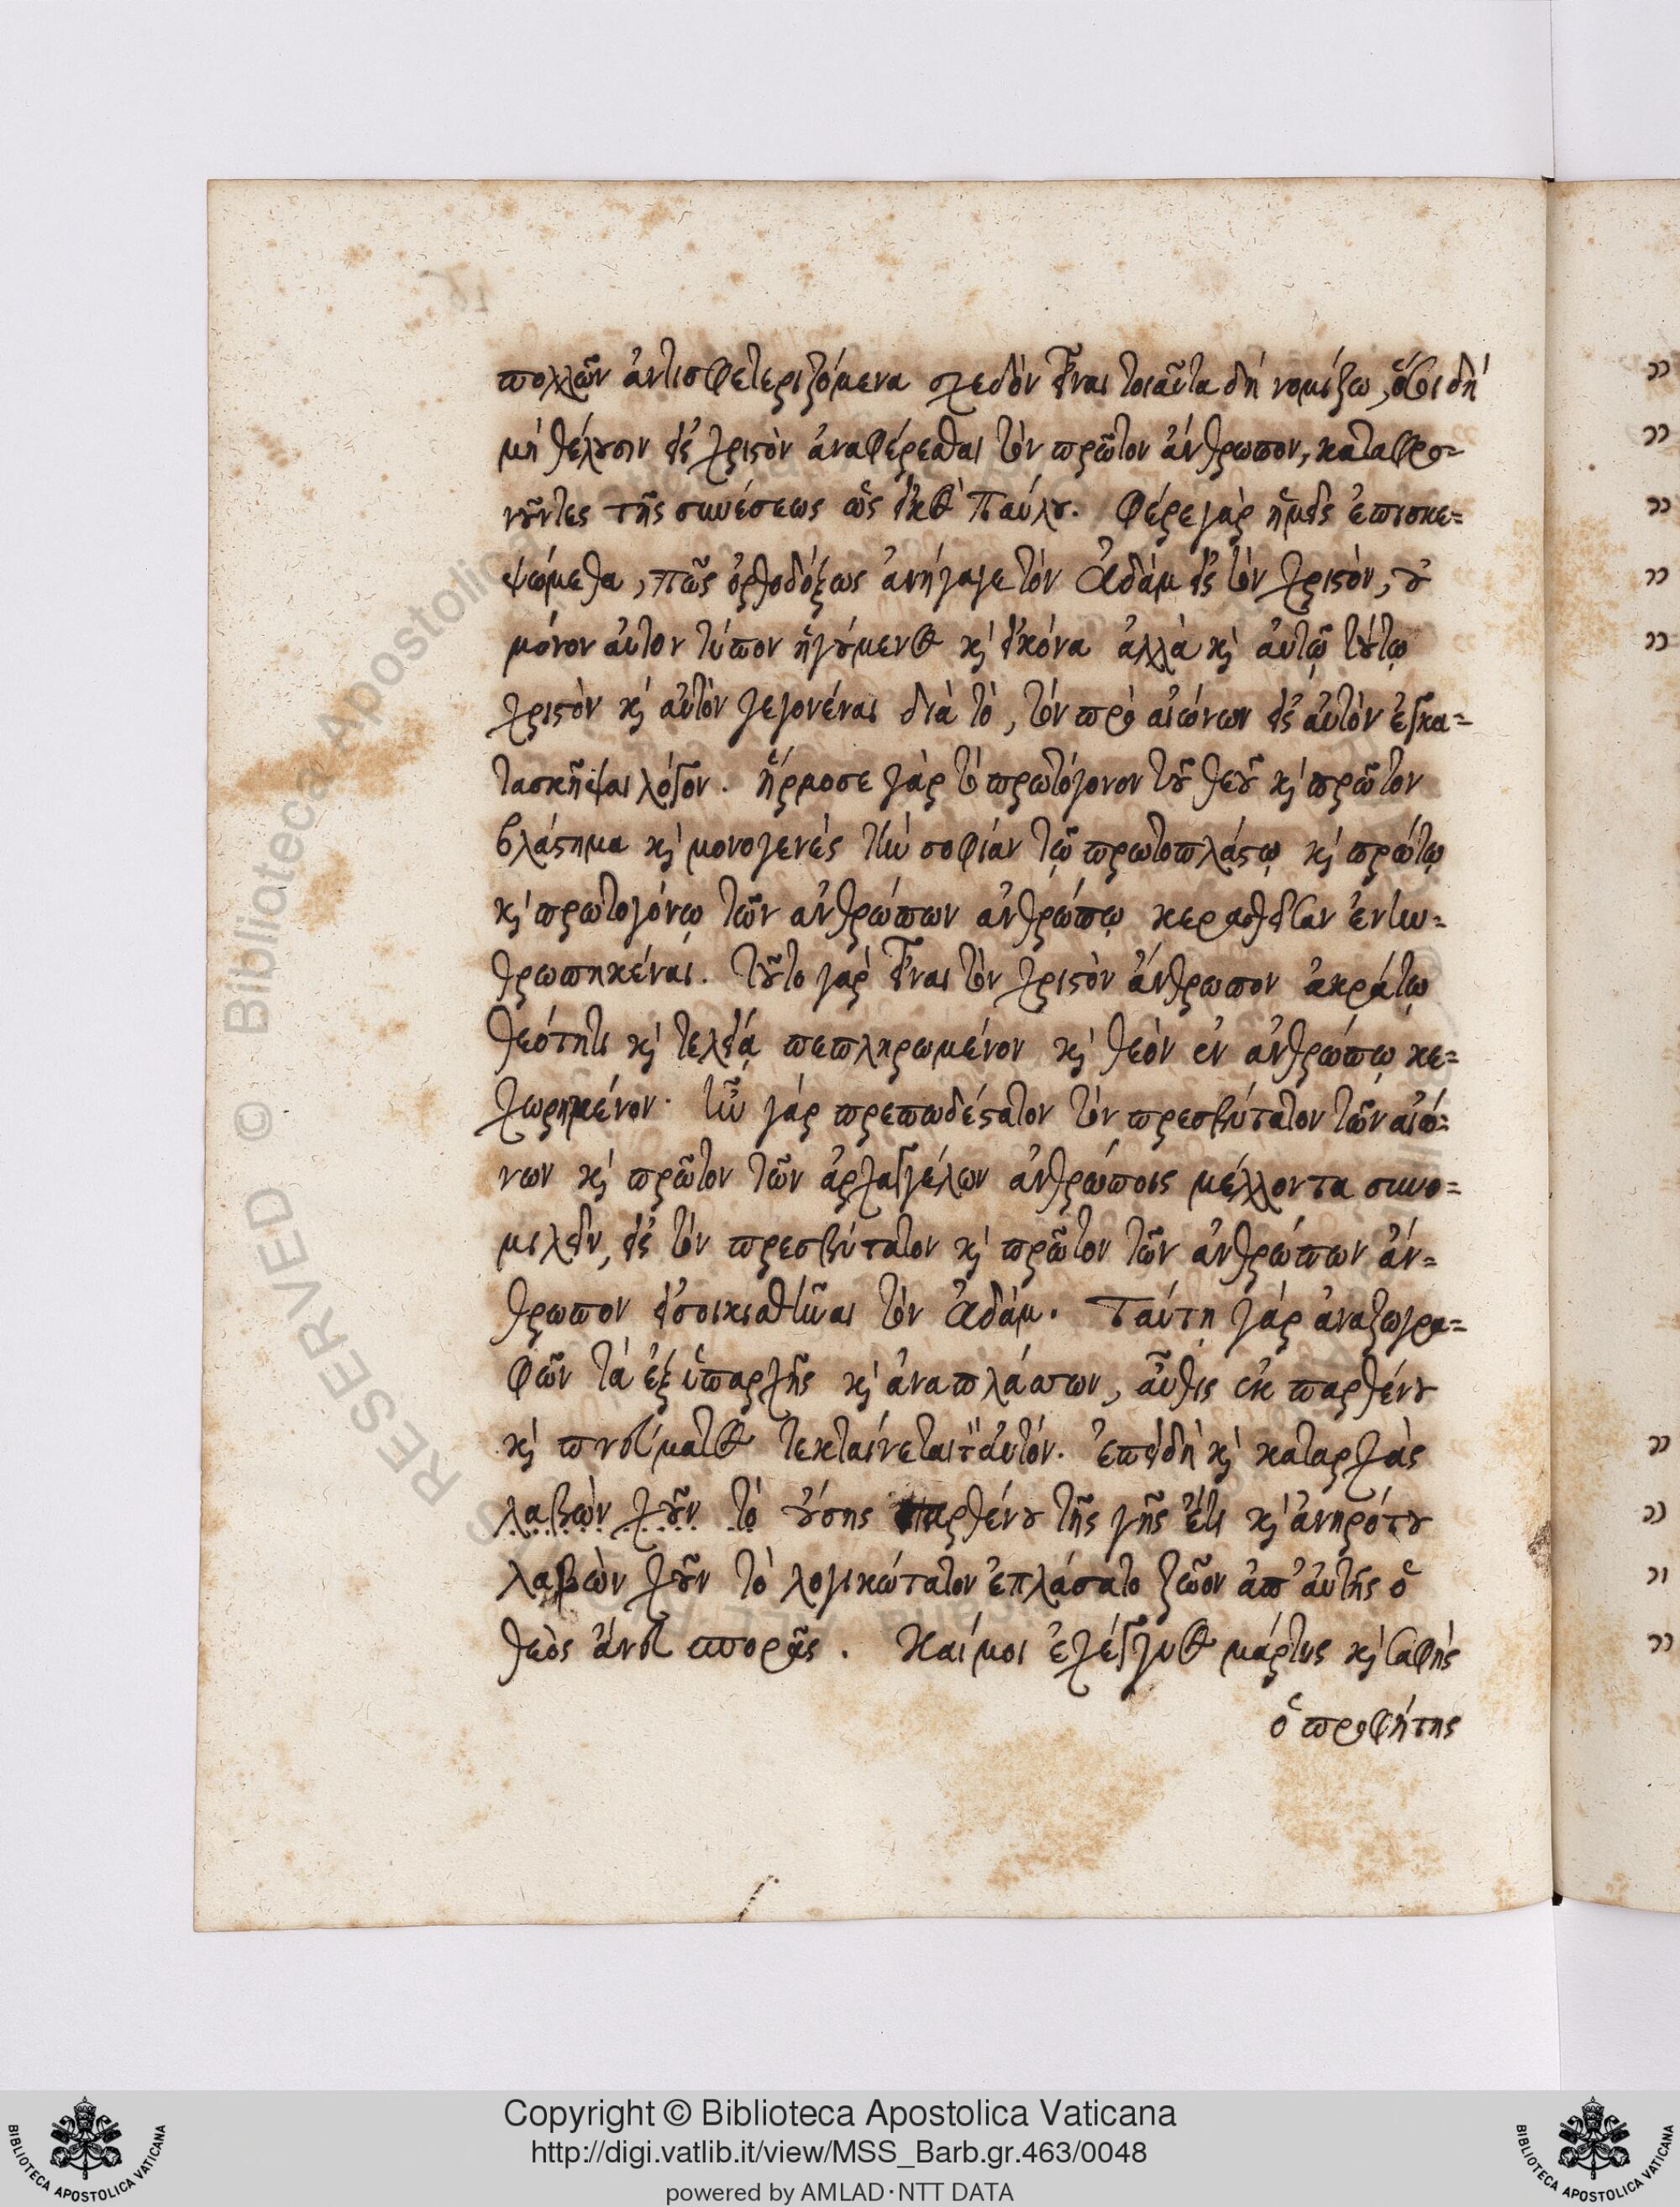 πολλῶν ἀντισφετεριζόμενα σχεδὸν εἶναι τοιαῦτα δὴ νομίζω, ὅτι δὴ
μὴ θέλουσιν εἰς χριστὸν ἀναφέρεσθαι τὸν πρῶτον ἄνθρωπον, καταφρο=
νοῦντες τῆς συνέσεως ὡς Παύλου. Φέρε γὰρ ἡμεῖς ἐπισκε=
ψώμεθα, πῶς ὀρθοδόξως ἀνήγαγε τὸν Ἀδὰμ εἰς τὸν χριστὸν, οὐ
μόνον αὐτὸν τύπον ἡγούμενος καὶ εἰκόνα ἀλλὰ καὶ αὐτῷ τούτῳ
χριστὸν καὶ αὐτὸν γεγονέναι διὰ τὸ, τὸν πρὸ αἰώνων εἰς αὐτὸν ἐγκα=
τασκῆψαι λόγον. ἥρμοσε γὰρ τὸ πρωτόγονον τοῦ θεοῦ καὶ πρῶτον
βλάστημα καὶ μονογενὲς τὴν σοφίαν τῷ πρωτοπλάστῳ καὶ πρώτῳ
καὶ πρωτογόνῳ τῶν ἀνθρώπων ἀνθρώπῳ κερασθεῖσαν ἐνην=
θρωπηκέναι. Τοῦτο γὰρ εἶναι τὸν χριστὸν ἄνθρωπον ἀκράτῳ
θεότητι καὶ τελείᾳ πεπληρωμένον καὶ θεὸν ἐν ἀνθρώπῳ κε=
χωρημένον. ἦν γὰρ πρεπωδέστατον τὸν πρεσβύτατον τῶν αἰώ=
νων καὶ πρῶτον τῶν ἀρχαγγέλων ἀνθρώποις μέλλοντα συνο=
μιλεῖν, εἰς τὸν πρεσβύτατον καὶ πρῶτον τῶν ἀνθρώπων ἄν=
θρωπον εἰσοικισθῆναι τὸν Ἀδάμ. Ταύτῃ γὰρ ἀναζωγρα=
φῶν τὰ ἐξ ὑπαρχῆς καὶ ἀναπλάσσων, αὖθις ἐκ παρθένου
καὶ πνεύματος τεκταίνεται αὐτόν. Ἐπειδὴ καὶ καταρχὰς
λαβὼν χοῦν τὸ οὔσης παρθένου τῆς γῆς ἔτι καὶ ἀνηρότου
λαβὼν χοῦν τὸ λογικώτατον ἐπλάσατο ζῶον ἀπ' αὐτῆς ὁ
θεὸς ἄνευ σπορᾶς. Καί μοι ἐχέγγυος μάρτυς καὶ σαφὴς
ὁ προφήτης
Copyright © Biblioteca Apostolica Vaticana
http://digi.vatlib.it/view/MSS_Barb.gr.463/0048
powered by AMLAD·NTT DATA